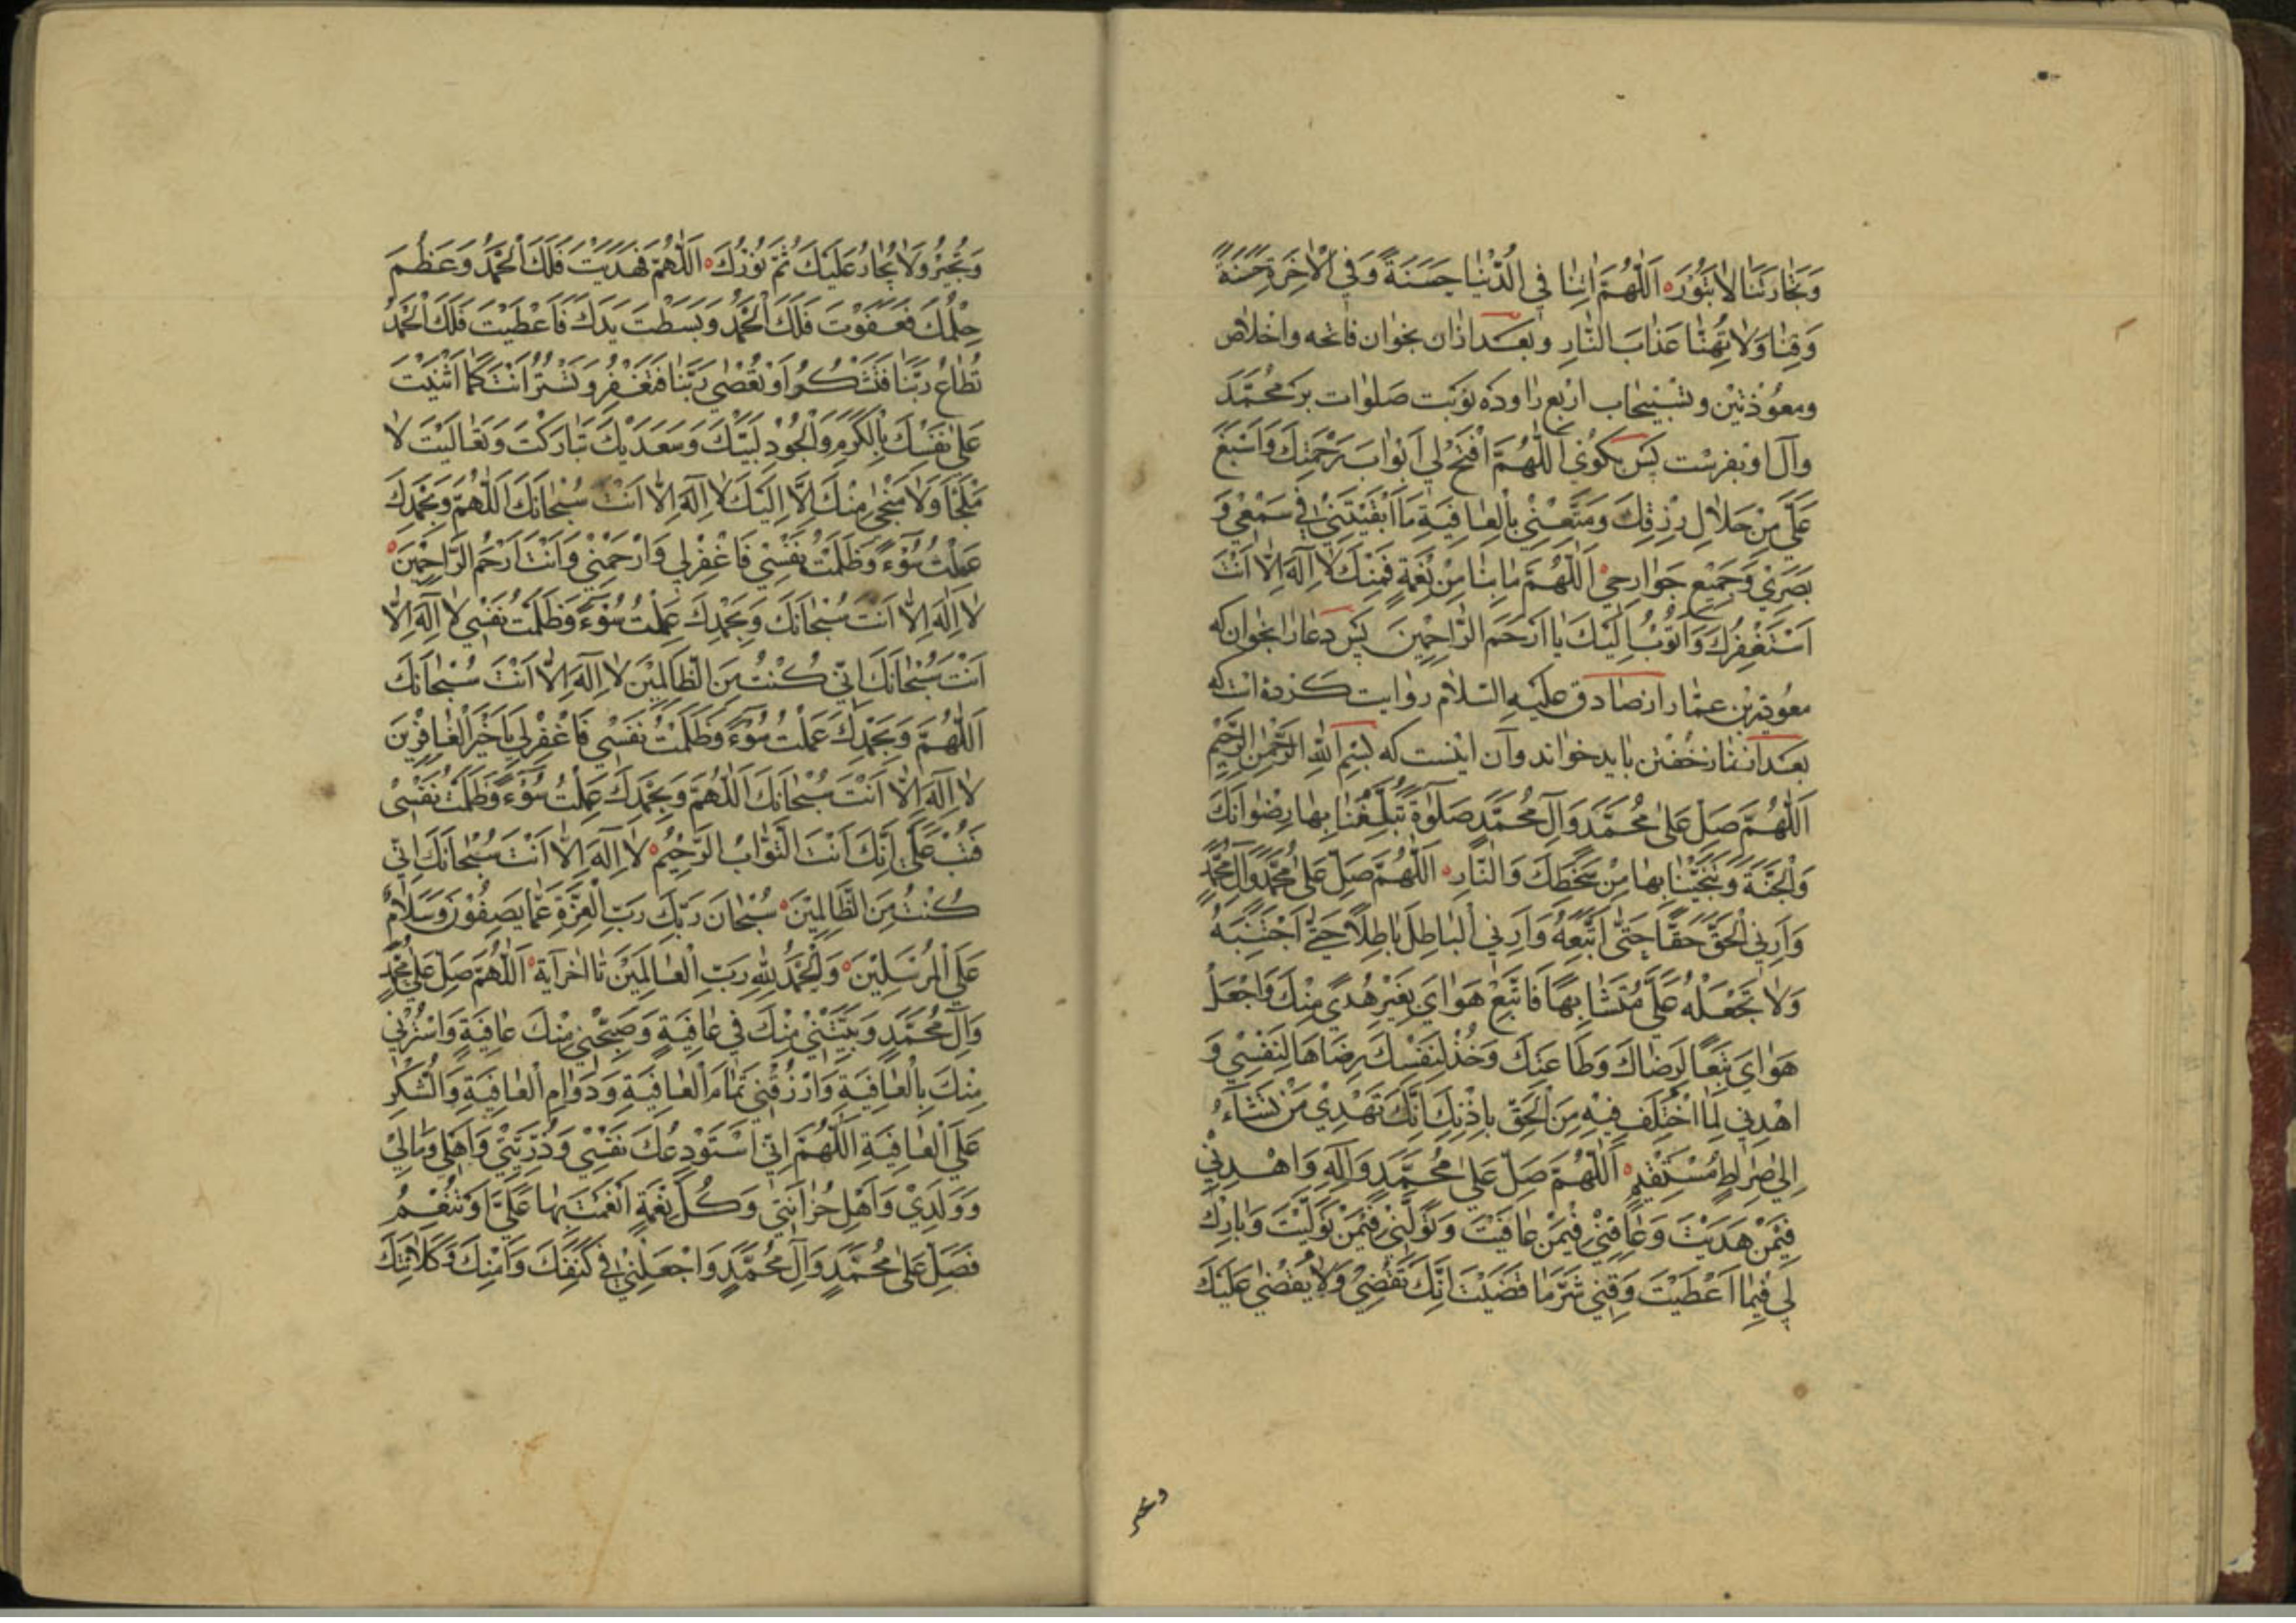 وَتِجَارَتَنَا لَا تَبُورَ اَللّٰهُمَّ اٰتِنَا فِي الدُّنْيَا حَسَنَةً وَفِي الْاٰخِرَةِ حَسَنَةً
وَقِنَا وَلَا تُهِنَّا عَذَابَ النَّارِ وبعد ازان بخوان فاتحه واخلاص
ومعوذتين وتسبيحات اربع را وده نوبت صلوات بر محمّد
وآل او بفرست پس بكوى اَللّٰهُمَّ افْتَحْ لِي اَبْوَابَ رَحْمَتِكَ وَاَسْبِغْ
عَلَيَّ مِنْ حَلَالِ رِزْقِكَ وَمَتِّعْنِي بِالْعَافِيَةِ مَا اَبْقَيْتَنِي فِي سَمْعِي وَ
بَصَرِي وَجَمِيعِ جَوَارِحِي اَللّٰهُمَّ مَا بِنَا مِنْ نِعْمَةٍ فَمِنْكَ لَا اِلٰهَ اِلَّا اَنْتَ
اَسْتَغْفِرُكَ وَاَتُوبُ اِلَيْكَ يَا اَرْحَمَ الرَّاحِمِينَ پس دعا را بخوان كه
معوية بن عمّار از صادق عليه السلام روايت كرده است كه
بعد از نماز خفتن بايد خواند وآن اينست كه بِسْمِ اللّٰهِ الرَّحْمٰنِ الرَّحِيمِ
اَللّٰهُمَّ صَلِّ عَلٰى مُحَمَّدٍ وَآلِ مُحَمَّدٍ صَلٰوةً تُبَلِّغُنَا بِهَا رِضْوَانَكَ
وَالْجَنَّةَ وَتُنْجِيْنَا بِهَا مِنْ سَخَطِكَ وَالنَّارِ اَللّٰهُمَّ صَلِّ عَلٰى مُحَمَّدٍ وَآلِ مُحَمَّدٍ
وَاَرِنِي الْحَقَّ حَقًّا حَتّٰى اَتَّبِعَهُ وَاَرِنِي الْبَاطِلَ بَاطِلًا حَتّٰى اَجْتَنِبَهُ
وَلَا تَجْعَلْهُ عَلَيَّ مُتَشَابِهًا فَاَتَّبِعَ هَوَايَ بِغَيْرِ هُدًى مِنْكَ وَاجْعَلْ
هَوَايَ تَبَعًا لِرِضَاكَ وَطَاعَتِكَ وَخُذْ لِنَفْسِكَ رِضَاهَا لِنَفْسِي وَ
اهْدِنِي لِمَا اخْتُلِفَ فِيهِ مِنَ الْحَقِّ بِاِذْنِكَ اِنَّكَ تَهْدِي مَنْ تَشَاءُ
اِلٰى صِرَاطٍ مُسْتَقِيمٍ اَللّٰهُمَّ صَلِّ عَلٰى مُحَمَّدٍ وَآلِهِ وَاهْدِنِي
فِيمَنْ هَدَيْتَ وَعَافِنِي فِيمَنْ عَافَيْتَ وَتَوَلَّنِي فِيمَنْ تَوَلَّيْتَ وَبَارِكْ
لِي فِيمَا اَعْطَيْتَ وَقِنِي شَرَّ مَا قَضَيْتَ اِنَّكَ تَقْضِي وَلَا يُقْضٰى عَلَيْكَ
وَتُجِيرُ وَلَا يُجَارُ عَلَيْكَ ثُمَّ نُورُكَ اَللّٰهُمَّ فَهَدَيْتَ فَلَكَ الْحَمْدُ وَعَظُمَ
حِلْمُكَ فَعَفَوْتَ فَلَكَ الْحَمْدُ وَبَسَطْتَ يَدَكَ فَاَعْطَيْتَ فَلَكَ الْحَمْدُ
تُطَاعُ رَبَّنَا فَتَشْكُرُ وَتُعْصٰى رَبَّنَا فَتَغْفِرُ وَتَسْتُرُ اَنْتَ كَمَا اَثْنَيْتَ
عَلٰى نَفْسِكَ بِالْكَرَمِ وَالْجُودِ لَبَّيْكَ وَسَعْدَيْكَ تَبَارَكْتَ وَتَعَالَيْتَ لَا
مَلْجَأَ وَلَا مَنْجٰى مِنْكَ اِلَّا اِلَيْكَ لَا اِلٰهَ اِلَّا اَنْتَ سُبْحَانَكَ اَللّٰهُمَّ وَبِحَمْدِكَ
عَمِلْتُ سُوءً وَظَلَمْتُ نَفْسِي فَاغْفِرْ لِي وَارْحَمْنِي وَاَنْتَ اَرْحَمُ الرَّاحِمِينَ
لَا اِلٰهَ اِلَّا اَنْتَ سُبْحَانَكَ وَبِحَمْدِكَ عَمِلْتُ سُوءً وَظَلَمْتُ نَفْسِي لَا اِلٰهَ اِلَّا
اَنْتَ سُبْحَانَكَ اِنِّي كُنْتُ مِنَ الظَّالِمِينَ لَا اِلٰهَ اِلَّا اَنْتَ سُبْحَانَكَ
اَللّٰهُمَّ وَبِحَمْدِكَ عَمِلْتُ سُوءً وَظَلَمْتُ نَفْسِي فَاغْفِرْ لِي يَا خَيْرَ الْغَافِرِينَ
لَا اِلٰهَ اِلَّا اَنْتَ سُبْحَانَكَ اَللّٰهُمَّ وَبِحَمْدِكَ عَمِلْتُ سُوءً وَظَلَمْتُ نَفْسِي
فَتُبْ عَلَيَّ اِنَّكَ اَنْتَ التَّوَّابُ الرَّحِيمُ لَا اِلٰهَ اِلَّا اَنْتَ سُبْحَانَكَ اِنِّي
كُنْتُ مِنَ الظَّالِمِينَ سُبْحَانَ رَبِّكَ رَبِّ الْعِزَّةِ عَمَّا يَصِفُونَ وَسَلَامٌ
عَلَى الْمُرْسَلِينَ وَالْحَمْدُ لِلّٰهِ رَبِّ الْعَالَمِينَ تا اخر آية اَللّٰهُمَّ صَلِّ عَلٰى مُحَمَّدٍ
وَآلِ مُحَمَّدٍ وَبَيِّتْنِي مِنْكَ فِي عَافِيَةٍ وَصَبِّحْنِي مِنْكَ عَافِيَةً وَاسْتُرْنِي
مِنْكَ بِالْعَافِيَةِ وَارْزُقْنِي تَمَامَ الْعَافِيَةِ وَدَوَامَ الْعَافِيَةِ وَالشُّكْرَ
عَلَى الْعَافِيَةِ اَللّٰهُمَّ اِنِّي اَسْتَوْدِعُكَ نَفْسِي وَذُرِّيَّتِي وَاَهْلِي وَمَالِي
وَوَلَدِي وَاَهْلَ حُزَانَتِي وَكُلَّ نِعْمَةٍ اَنْعَمْتَ بِهَا عَلَيَّ اَوْ تُنْعِمُ
فَصَلِّ عَلٰى مُحَمَّدٍ وَآلِ مُحَمَّدٍ وَاجْعَلْنِي فِي كَنَفِكَ وَاَمْنِكَ وَكَلَائَتِكَ